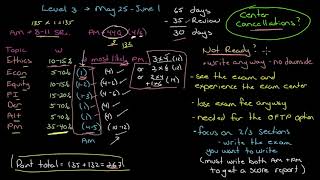 Level 3 → May 25 - June 1
65 days
35 - Review
30 days
Center Cancellations?
135 × 1 = 135
AM → 8-11 S.R.
Topic W
most likely PM
Ethics 10-15%
Econ 5-10% (1)
FI
Eq
Alt 5-10%
Pm 35-40%
AM
Point total = 135 + 132 = 267
Not Ready?
- write anyway - no downside
- see the exam and experience the exam center
- lose exam fee anyway
- needed for the OFTP option
- focus on 2/3 sections
- write the exam you want to write
(must write both AM + PM to get a score report)